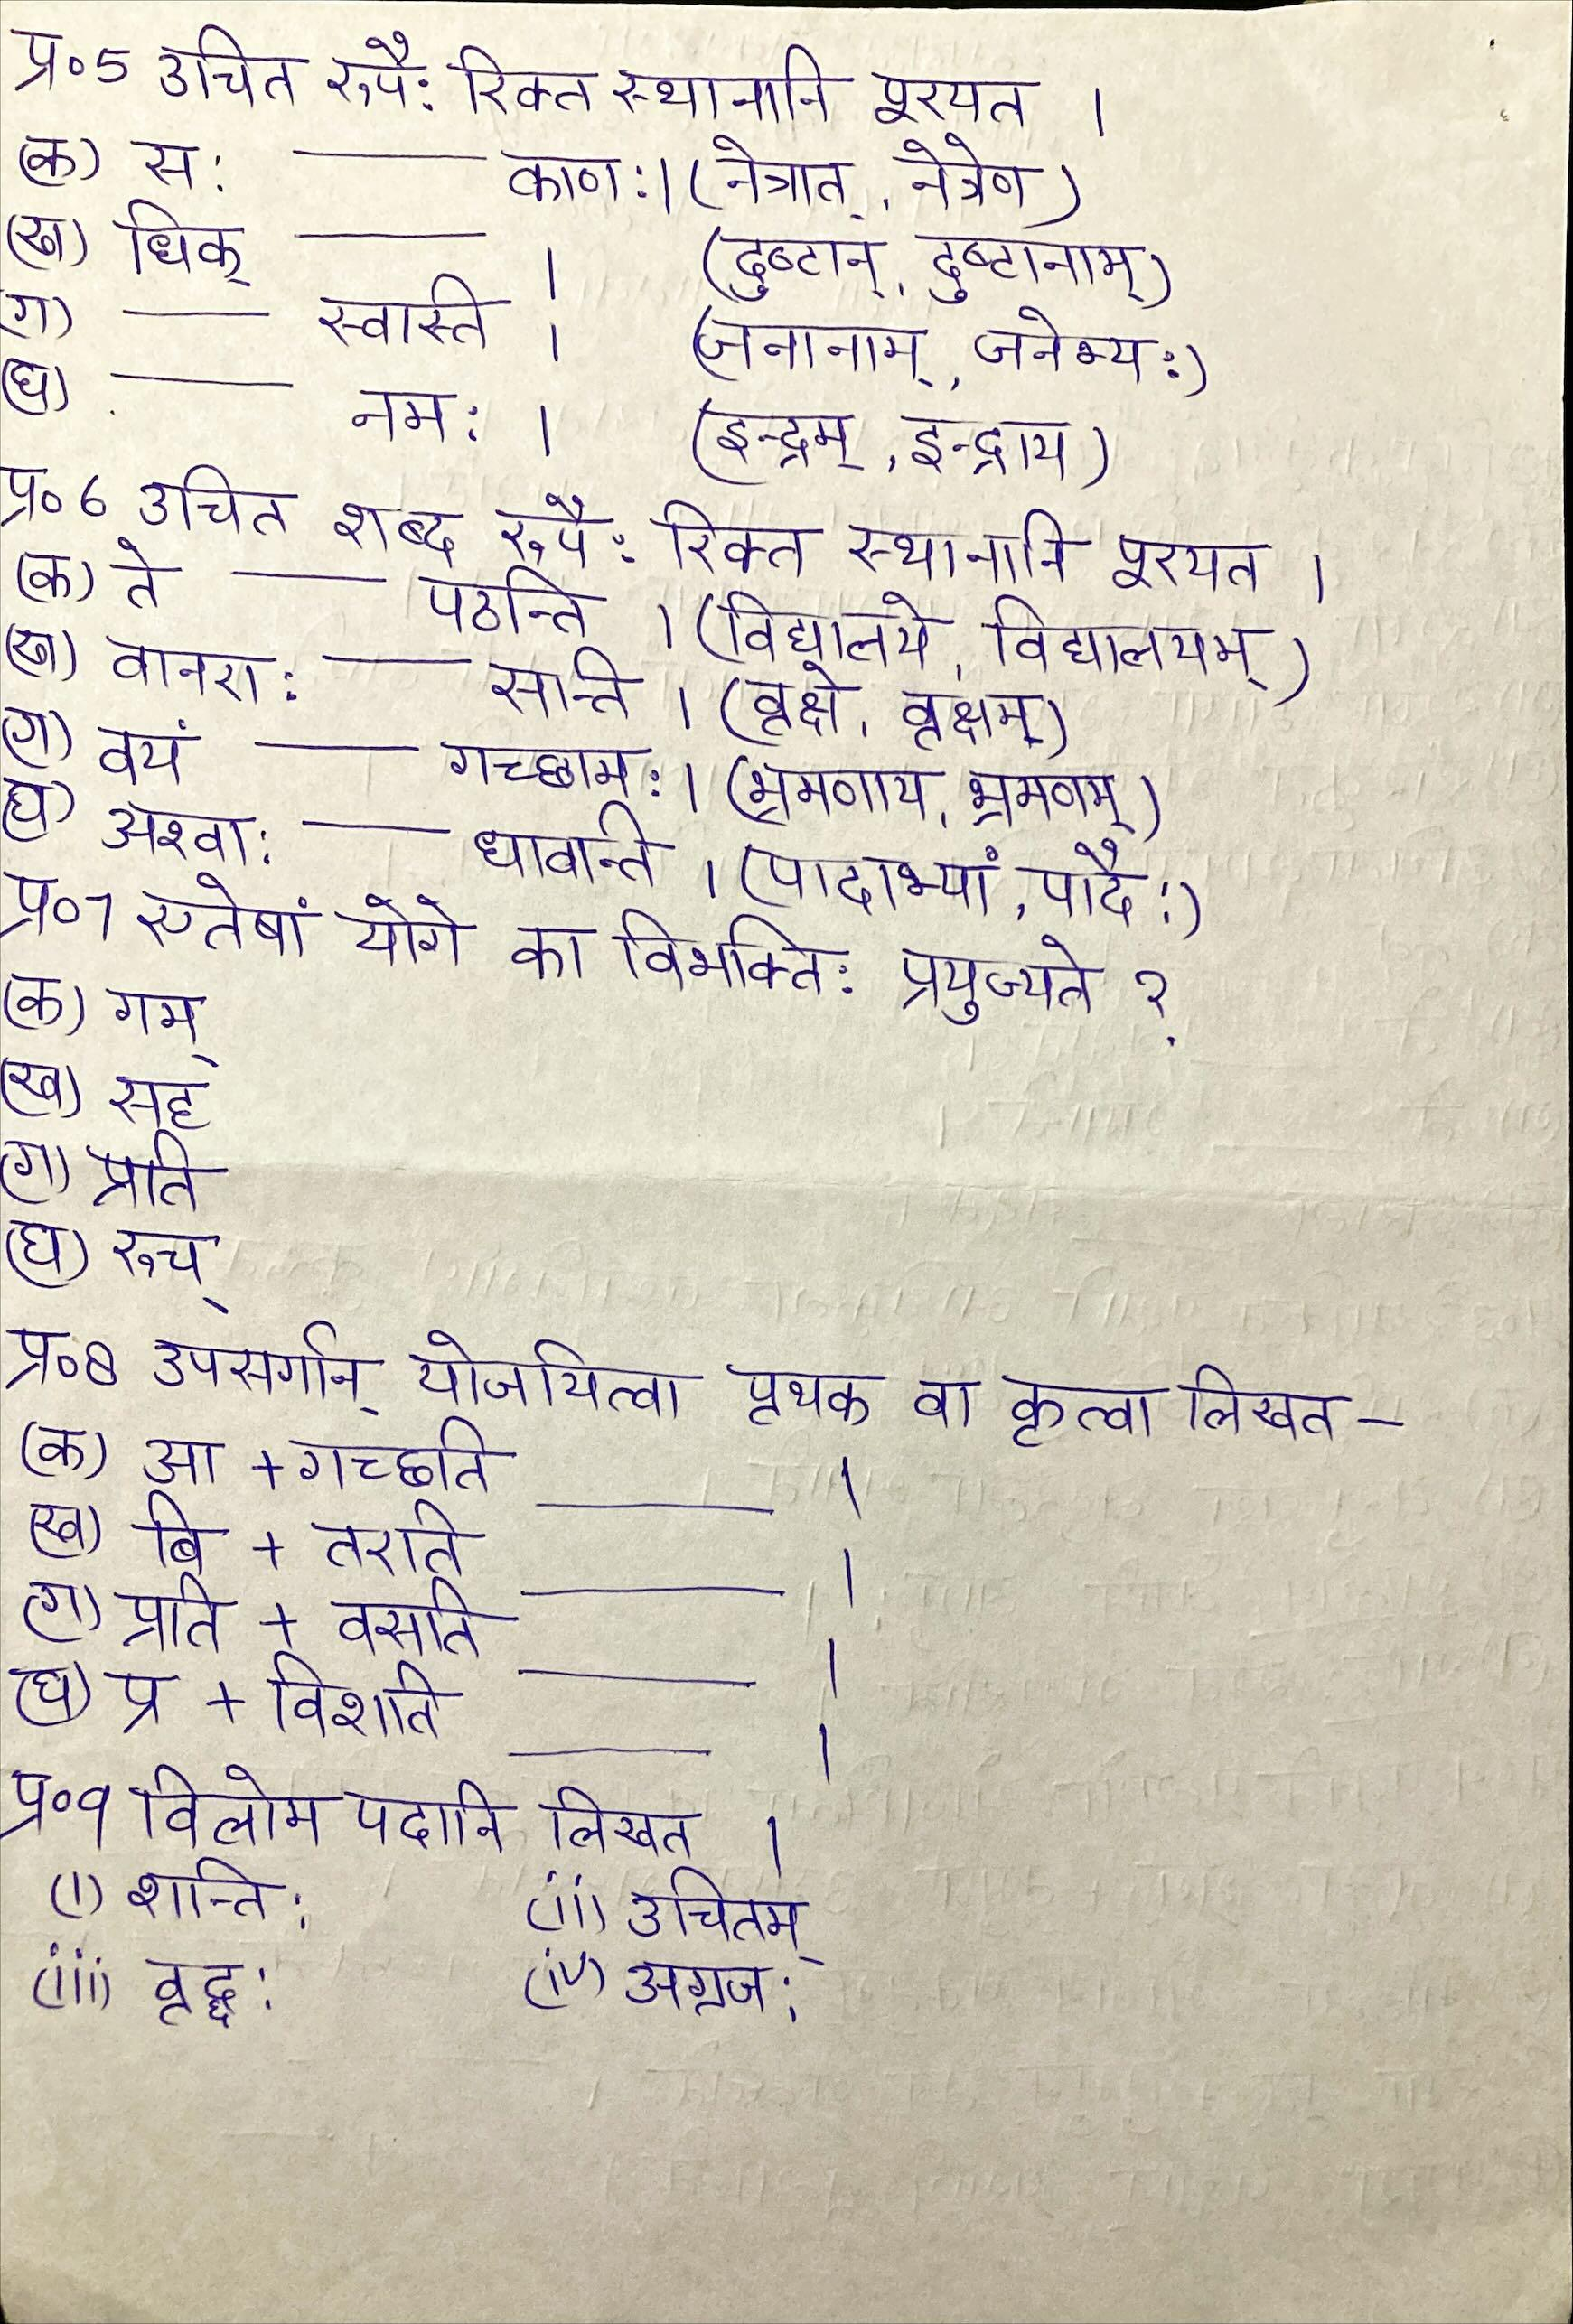 प्र०5 उचित रूपैः रिक्त स्थानानि पूरयत ।
(क) सः ——— काणः। (नेत्रात्, नेत्रेण)
(ख) धिक् ——— । (दुष्टान्, दुष्टानाम्)
(ग) ——— स्वास्ति । (जनानाम्, जनेभ्यः)
(घ) ——— नमः । (इन्द्रम्, इन्द्राय)
प्र०6 उचित शब्द रूपैः रिक्त स्थानानि पूरयत ।
(क) ते ——— पठन्ति । (विद्यालये, विद्यालयम्)
(ख) वानराः ——— सन्ति । (वृक्षे, वृक्षम्)
(ग) वयं ——— गच्छामः। (भ्रमणाय, भ्रमणम्)
(घ) अश्वाः ——— धावन्ति । (पादाभ्यां, पादैः)
प्र०7 एतेषां योगे का विभक्तिः प्रयुज्यते ?
(क) गम्
(ख) सह
(ग) प्रति
(घ) रूच्
प्र०8 उपसर्गान् योजयित्वा पृथक वा कृत्वा लिखत –
(क) आ + गच्छति ——— ।
(ख) बि + तरति ——— ।
(ग) प्रति + वसति ——— ।
(घ) प्र + विशति ——— ।
प्र०९ विलोम पदानि लिखत ।
(i) शान्तिः (ii) उचितम्
(iii) वृद्धः (iv) अग्रजः